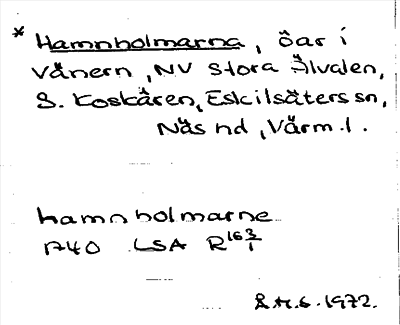 * Hamnholmarna, öar i
Vänern, NV Stora Älvalen,
S. Koskären, Eskilsäters sn,
Näs hd, Värm. l.
hamnholmarne
1740 LSA R 163/1
S.M.S. 1972.